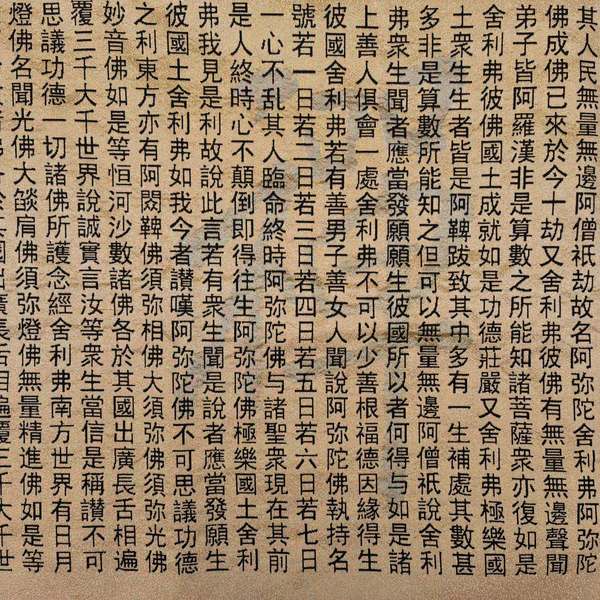 其人民無量無邊阿僧祇劫故名阿彌陀舍利弗阿彌陀
佛成佛已來於今十劫又舍利弗彼佛有無量無邊聲聞
弟子皆阿羅漢非是算數之所能知諸菩薩衆亦復如是
舍利弗彼佛國土成就如是功德莊嚴又舍利弗極樂國
土衆生生者皆是阿鞞跋致其中多有一生補處其數甚
多非是算數所能知之但可以無量無邊阿僧祇說舍利
弗衆生聞者應當發願願生彼國所以者何得與如是諸
上善人俱會一處舍利弗不可以少善根福德因緣得生
彼國舍利弗若有善男子善女人聞說阿彌陀佛執持名
號若一日若二日若三日若四日若五日若六日若七日
一心不乱其人臨命終時阿彌陀佛與諸聖衆現在其前
是人終時心不顛倒即得往生阿彌陀佛極樂國土舍利
弗我見是利故說此言若有衆生聞是說者應當發願生
彼國土舍利弗如我今者讃嘆阿彌陀佛不可思議功德
之利東方亦有阿閦鞞佛須彌相佛大須彌佛須彌光佛
妙音佛如是等恒河沙數諸佛各於其國出廣長舌相遍
覆三千大千世界說誠實言汝等衆生當信是稱讃不可
思議功德一切諸佛所護念經舍利弗南方世界有日月
燈佛名聞光佛大燄肩佛須彌燈佛無量精進佛如是等